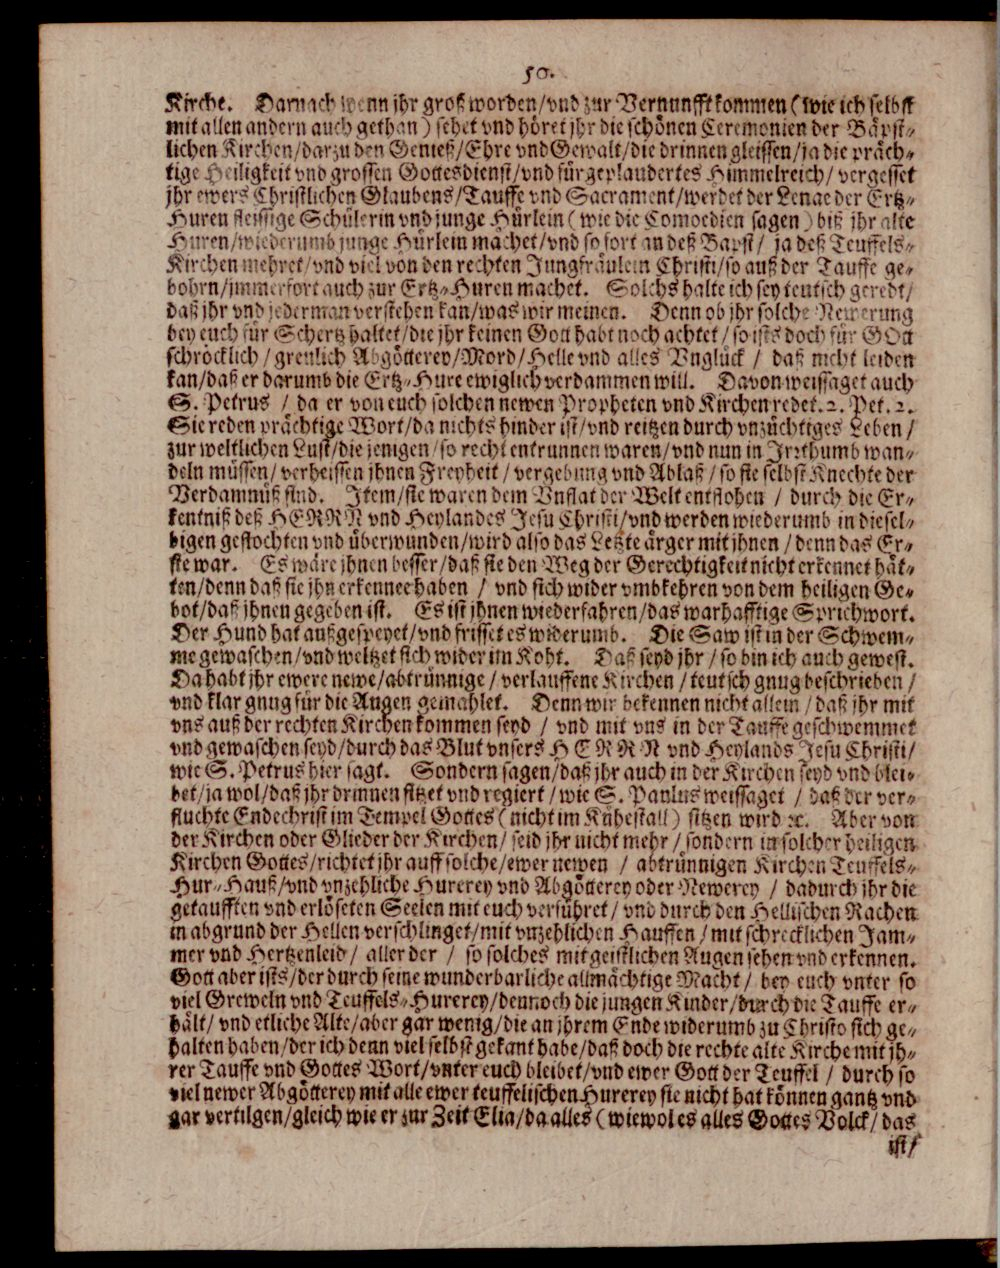 50.
Kirche. Darnach wenn jhr groß worden/vnd zur Vernunfft kommen (wie ich selbst
mit allen andern auch gethan) sehet vnd höret jhr die schönen Ceremonien der Bäpst-
lichen Kirchen/darzu den Genieß/Ehre vnd Gewalt/die drinnen gleissen/ja die präch-
tige Heiligkeit vnd grossen Gottesdienst/vnd fürgeplaudertes Himmelreich/vergesset
jhr ewers Christlichen Glaubens/Tauffe vnd Sacrament/werdet der Lenae der Ertz-
Huren fleissige Schülerin vnd junge Hürlein (wie die Comoedien sagen) biß jhr alte
Huren/wiederumb junge Hürlein machet/vnd so fort an deß Bapst/ ja deß Teuffels-
Kirchen mehret/vnd viel von den rechten Jungfräulein Christi/so auß der Tauffe ge-
bohrn/jmmerfort auch zur Ertz-Huren machet. Solchs halte ich sey teutsch geredt/
daß jhr vnd jederman verstehen kan/was wir meinen. Denn ob jhr solche Newerung
bey euch für Schertz haltet/die jhr keinen Gott habt noch achtet/so ists doch für GOtt
schröcklich/grenlich Abgötterey/Mord/Helle vnd alles Vnglück / daß nicht leiden
kan/daß er darumb die Ertz-Hure ewiglich verdammen will. Davon weissaget auch
S. Petrus / da er von euch solchen newen Propheten vnd Kirchen redet. 2. Pet. 2.
Sie reden prächtige Wort/da nichts hinder ist/vnd reitzen durch vnzüchtiges Leben/
zur weltlichen Lust/die jenigen/so recht entrunnen waren/vnd nun in Irrthumb wan-
deln müssen/verheissen ihnen Freyheit/vergebung vnd Ablaß/so sie selbst Knechte der
Verdamnüß sind. Item/sie waren dem Vnflat der Welt entflohen / durch die Er-
kentniß deß HERRN vnd Heylandes Jesu Christi/vnd werden wiederumb in diesel-
bigen geflochten vnd überwunden/wird also das Letzte ärger mit jhnen/denn das Er-
ste war. Es wäre jhnen besser/daß sie den Weg der Gerechtigkeit nicht erkennet hät-
ten/denn daß sie jhn erkennee haben / vnd sich wider vmbkehren von dem heiligen Ge-
bot/daß jhnen gegeben ist. Es ist jhnen wiederfahren/das warhafftige Sprichwort.
Der Hund hat außgespeyet/vnd frisset es widerumb. Die Saw ist in der Schwem-
me gewaschen/vnd weltzet sich wider im Koht. Daß seyd jhr/so bin ich auch gewest.
Da habt jhr ewere newe/abtrünnige/verlauffene Kirchen/teutsch gnug beschrieben/
vnd klar gnug für die Augen gemahlet. Denn wir bekennen nicht allein/daß jhr mit
vns auß der rechten Kirchen kommen seyd / vnd mit vns in der Tauffe geschwemmet
vnd gewaschen seyd/durch das Blut vnsers HERRN vnd Heylands Jesu Christi/
wie S. Petrus hier sagt. Sondern sagen/daß jhr auch in der Kirchen seyd vnd blei-
bet/ja wol/daß jhr drinnen sitzet vnd regiert/wie S. Paulus weissaget / daß der ver-
fluchte Endechrist im Tempel Gottes (nicht im Kühestall) sitzen wird ꝛc. Aber von
der Kirchen oder Glieder der Kirchen/seid jhr nicht mehr/sondern in solcher heiligen
Kirchen Gottes/richtet jhr auff solche/ewer newen / abtrünnigen Kirchen Teuffels-
Hur-Hauß/vnd vnzehliche Hurerey vnd Abgötterey oder Newerey / dadurch jhr die
getaufften vnd erlöseten Seelen mit euch verführet/vnd durch den Hellischen Rachen
in abgrund der Hellen verschlinget/mit vnzehlichen Hauffen/mit schrecklichen Jam-
mer vnd Hertzenleid/ aller der / so solches mit geistlichen Augen sehen vnd erkennen.
Gott aber ists/der durch seine wunderbarliche allmächtige Macht/ bey euch vnter so
viel Greweln vnd Teuffels-Hurerey/dennoch die jungen Kinder/durch die Tauffe er-
hält/vnd etliche Alte/aber gar wenig/die an jhrem Ende widerumb zu Christo sich ge-
halten haben/der ich denn viel selbst gekant habe/daß doch die rechte alte Kirche mit jh-
rer Tauffe vnd Gottes Wort/vnter euch bleibet/vnd ewer Gott der Teuffel / durch so
viel newer Abgötterey mit alle ewer teuffelischen Hurerey sie nicht hat können gantz vnd
gar vertilgen/gleich wie er zur Zeit Elia/da alles (wiewol es alles Gottes Volck/das
ist/